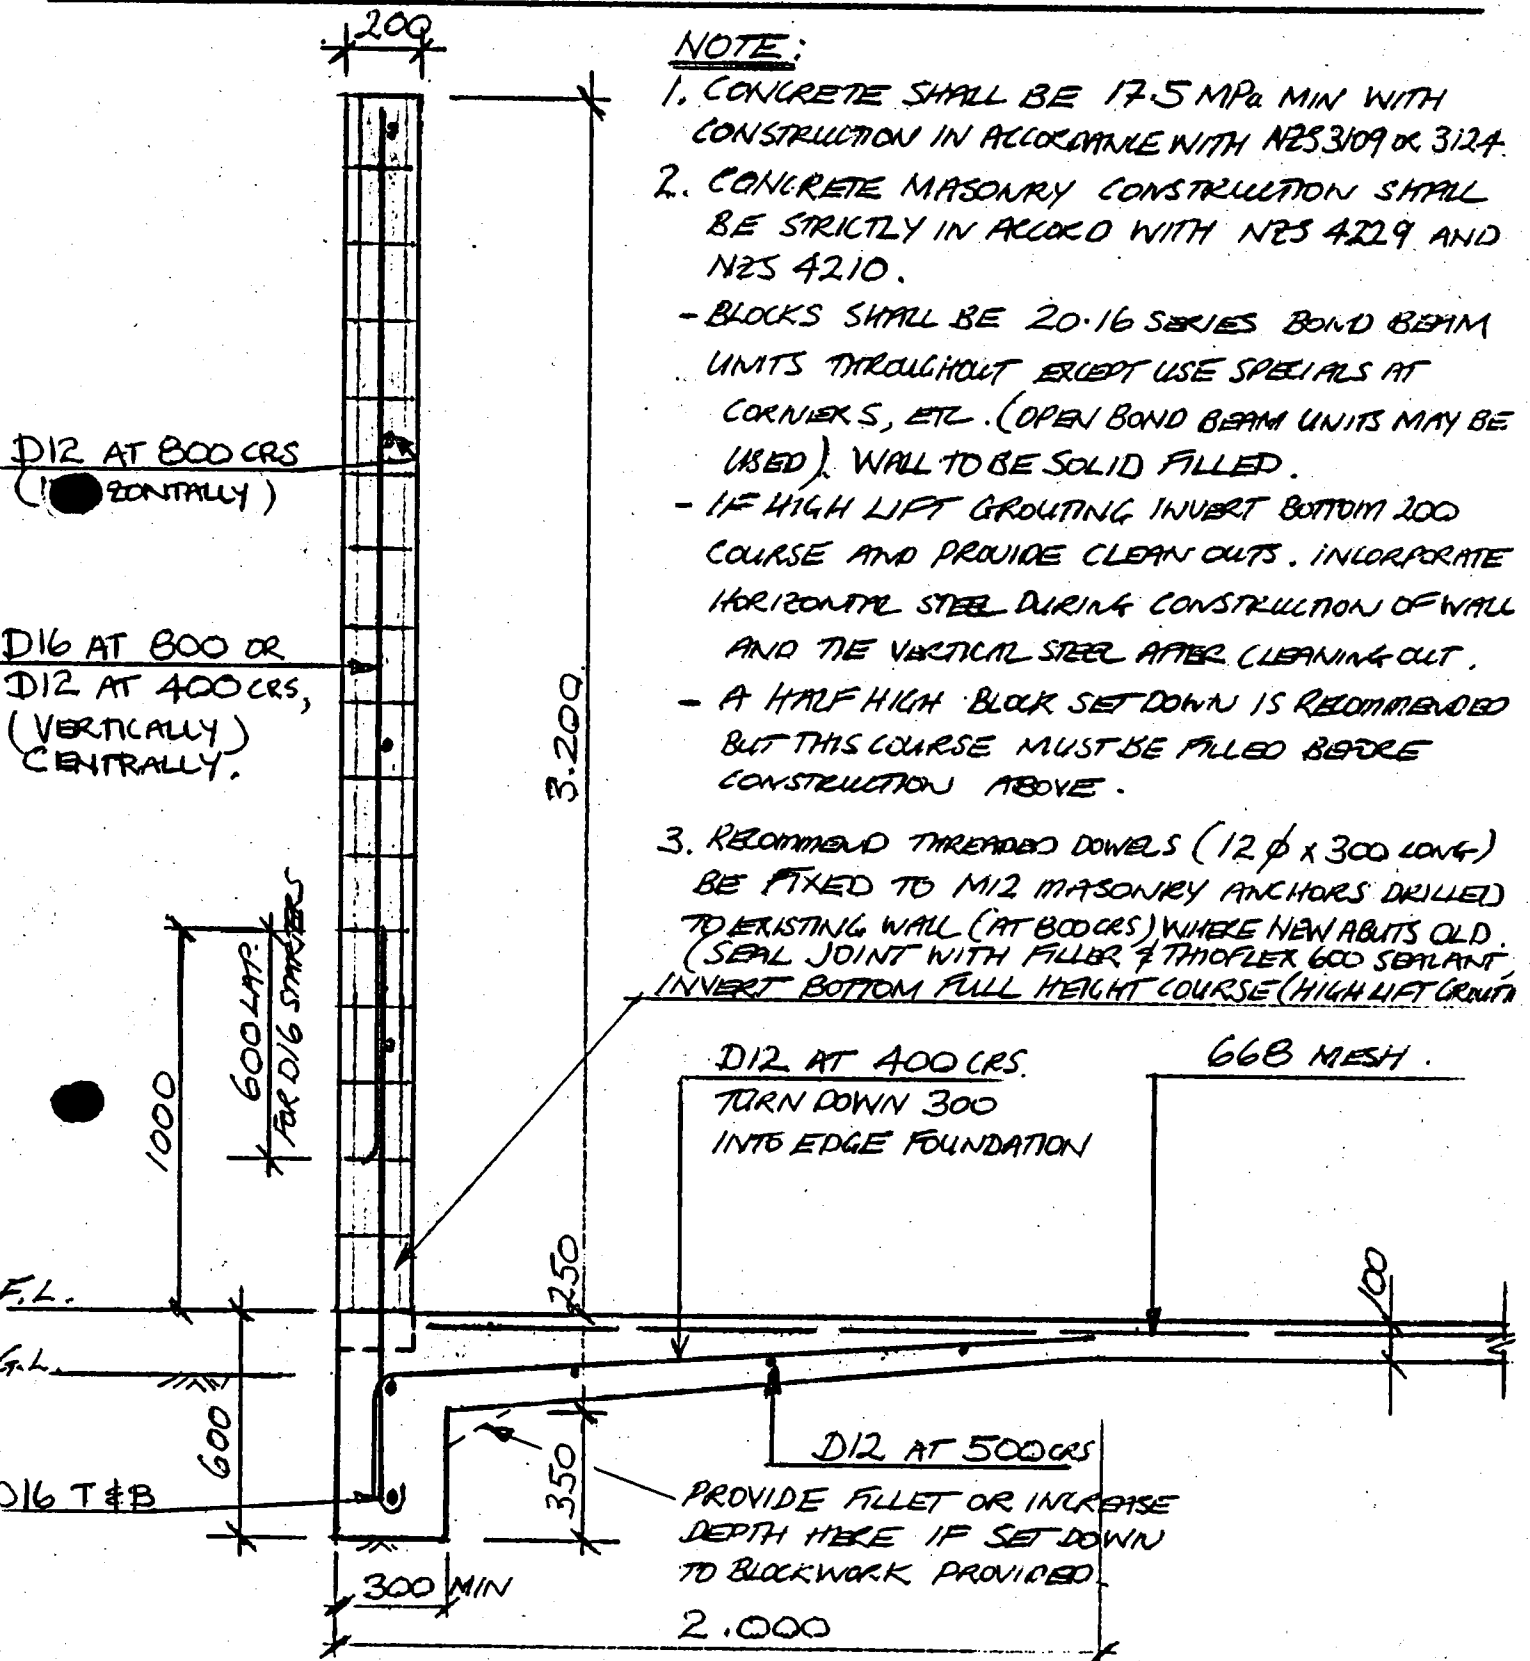 200
NOTE:
1. CONCRETE SHALL BE 17.5 MPa MIN WITH
CONSTRUCTION IN ACCORDANCE WITH NZS 3109 OR 3124.
2. CONCRETE MASONRY CONSTRUCTION SHALL
BE STRICTLY IN ACCORD WITH NZS 4229 AND
NZS 4210.
- BLOCKS SHALL BE 20.16 SERIES BOND BEAM
UNITS THROUGHOUT EXCEPT USE SPECIALS AT
CORNERS, ETC. (OPEN BOND BEAM UNITS MAY BE
USED). WALL TO BE SOLID FILLED.
- IF HIGH LIFT GROUTING INVERT BOTTOM 200
COURSE AND PROVIDE CLEAN OUTS. INCORPORATE
HORIZONTAL STEEL DURING CONSTRUCTION OF WALL
AND TIE VERTICAL STEEL AFTER CLEANING OUT.
- A HALF HIGH BLOCK SET DOWN IS RECOMMENDED
BUT THIS COURSE MUST BE FILLED BEFORE
CONSTRUCTION ABOVE.
3. RECOMMEND THREADED DOWELS (12 ϕ x 300 LONG)
BE FIXED TO M12 MASONRY ANCHORS DRILLED
TO EXISTING WALL (AT 800 CRS) WHERE NEW ABUTS OLD.
(SEAL JOINT WITH FILLER & THIOFLEX 600 SEALANT)
INVERT BOTTOM FULL HEIGHT COURSE (HIGH LIFT GROUTI
D12 AT 800 CRS
ZONTALLY)
D16 AT 800 OR
D12 AT 400 CRS,
(VERTICALLY)
CENTRALLY.
3.200
1000
600 LAP.
FOR D16 STARTERS
D12 AT 400 CRS.
TURN DOWN 300
INTO EDGE FOUNDATION
668 MESH.
F.L.
250
100
G.L.
600
D16 T & B
350
D12 AT 500 CRS
PROVIDE FILLET OR INCREASE
DEPTH HERE IF SET DOWN
TO BLOCKWORK PROVIDED.
300 MIN
2.000